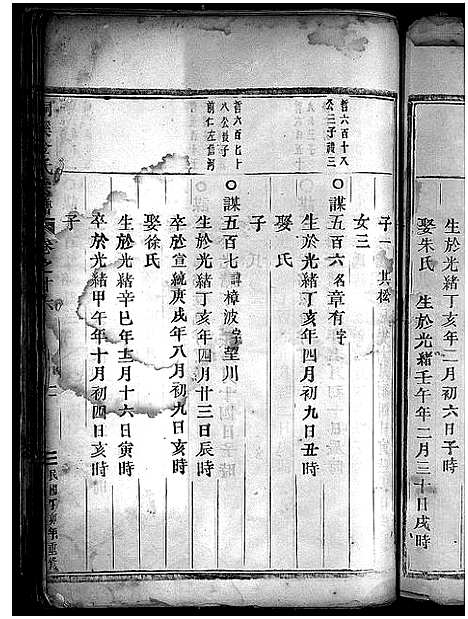 生於光緒丁亥年二月初六日子時
娶朱氏 生於光緒壬午年二月三十日戌時
子一 其松
女三
哲六百十八
公三子禮三
○謀五百六名章有字
生於光緒丁亥年四月初九日丑時
娶 氏
子
哲六百七十
八公後子
前仁左信河
○謀五百七諱樟波字望川
生於光緒丁亥年四月廿三日辰時
卒於宣統庚戌年八月初九日亥時
娶徐氏
生於光緒辛巳年十二月十六日寅時
卒於光緒甲午年十月初四日亥時
子